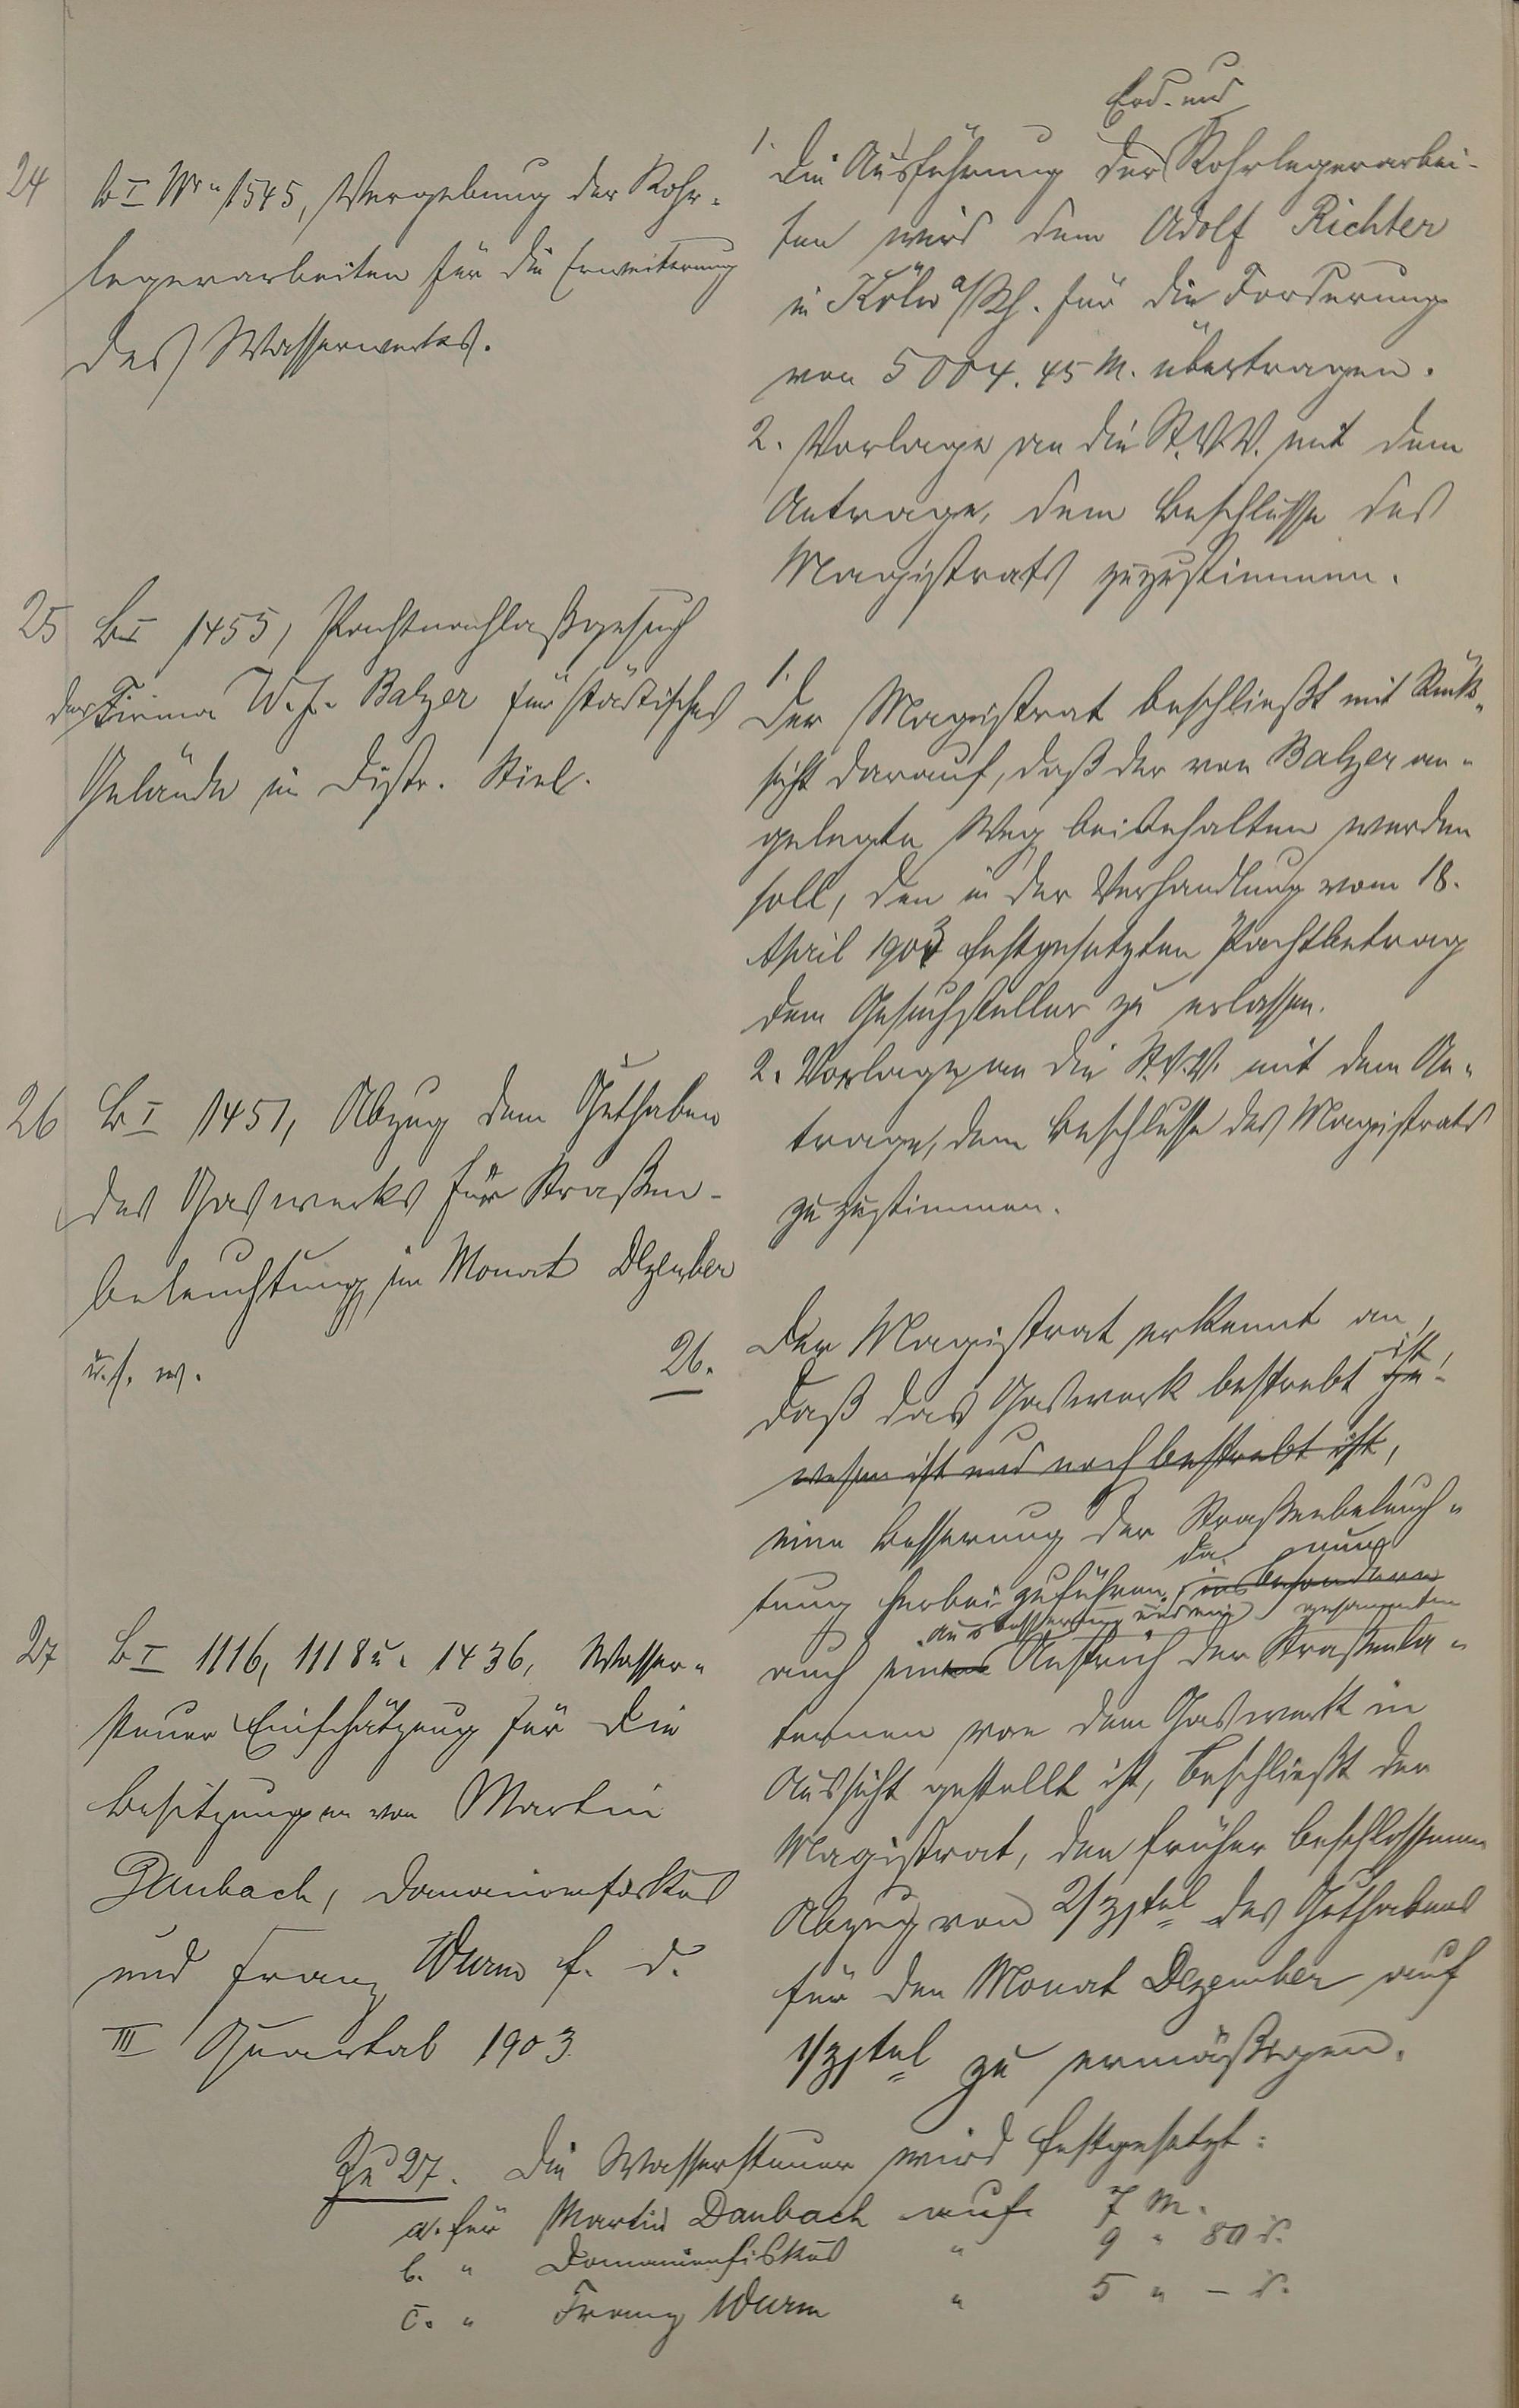 24
b I Nr. 1545, Vergebung der Rohr-
legerarbeiten für die Erweiterung
des Wasserwerkes.
Erd- und
1. Die Ausführung der Rohrlegerarbei-
ten wird dem Adolf Richter
in Köln a/Rh. für die Forderung
von 5004.45 M. übertragen.
2. Vorlage an die St.V.V. mit dem
Antrage, dem Beschlusse des
Magistrats zuzustimmen.
25 b I 1455, Pachtnachlaßgesuch
der Firma W. f. Balzer für städtisches
Gelände im Distr. Stiel.
1.
Der Magistrat beschließt mit Rück-
sicht darauf, daß der von Balzer an-
gelegte Weg beibehalten werden
soll, den in der Verhandlung vom 18.
April 1903 festgesetzten Pachtbetrag
dem Gesuchsteller zu erlassen.
2. Vorlage an die St.V.V. mit dem An-
trage, dem Beschlusse des Magistrats
zuzustimmen.
26 b I 1451, Abzug dem Guthaben
des Gaswerks für Straßen-
beleuchtung im Monat Dezember
u.s.w.
26. Der Magistrat erkennt an,
daß das Gaswerk bestrebt ge- ist,
wesen ist und noch bestrebt ist,
eine Besserung der Straßenbeleuch-
tung herbeizuführen, insbesondere
da nun
Ausbesserung und gesammten
auch einen Anstrich der Straßenla-
ternen von dem Gaswerk in
Aussicht gestellt ist, beschließt der
Magistrat, den früher beschlossenen
Abzug von 2/31tel des Guthabens
für den Monat Dezember auf
1/31tel zu ermäßigen.
27 b I 1116, 1118 u. 1436, Wasser-
steuer Einschätzung für die
Besitzungen von Martin
Daubach, Domänenfiskus
und Franz Wurm f. d.
III Quartal 1903.
Zu 27. Die Wassersteuer wird festgesetzt:
a. für Martin Daubach auf 7 M.
b. " Domänenfiskus " 9 " 80 d.
c. " Franz Wurm " 5 " – d.